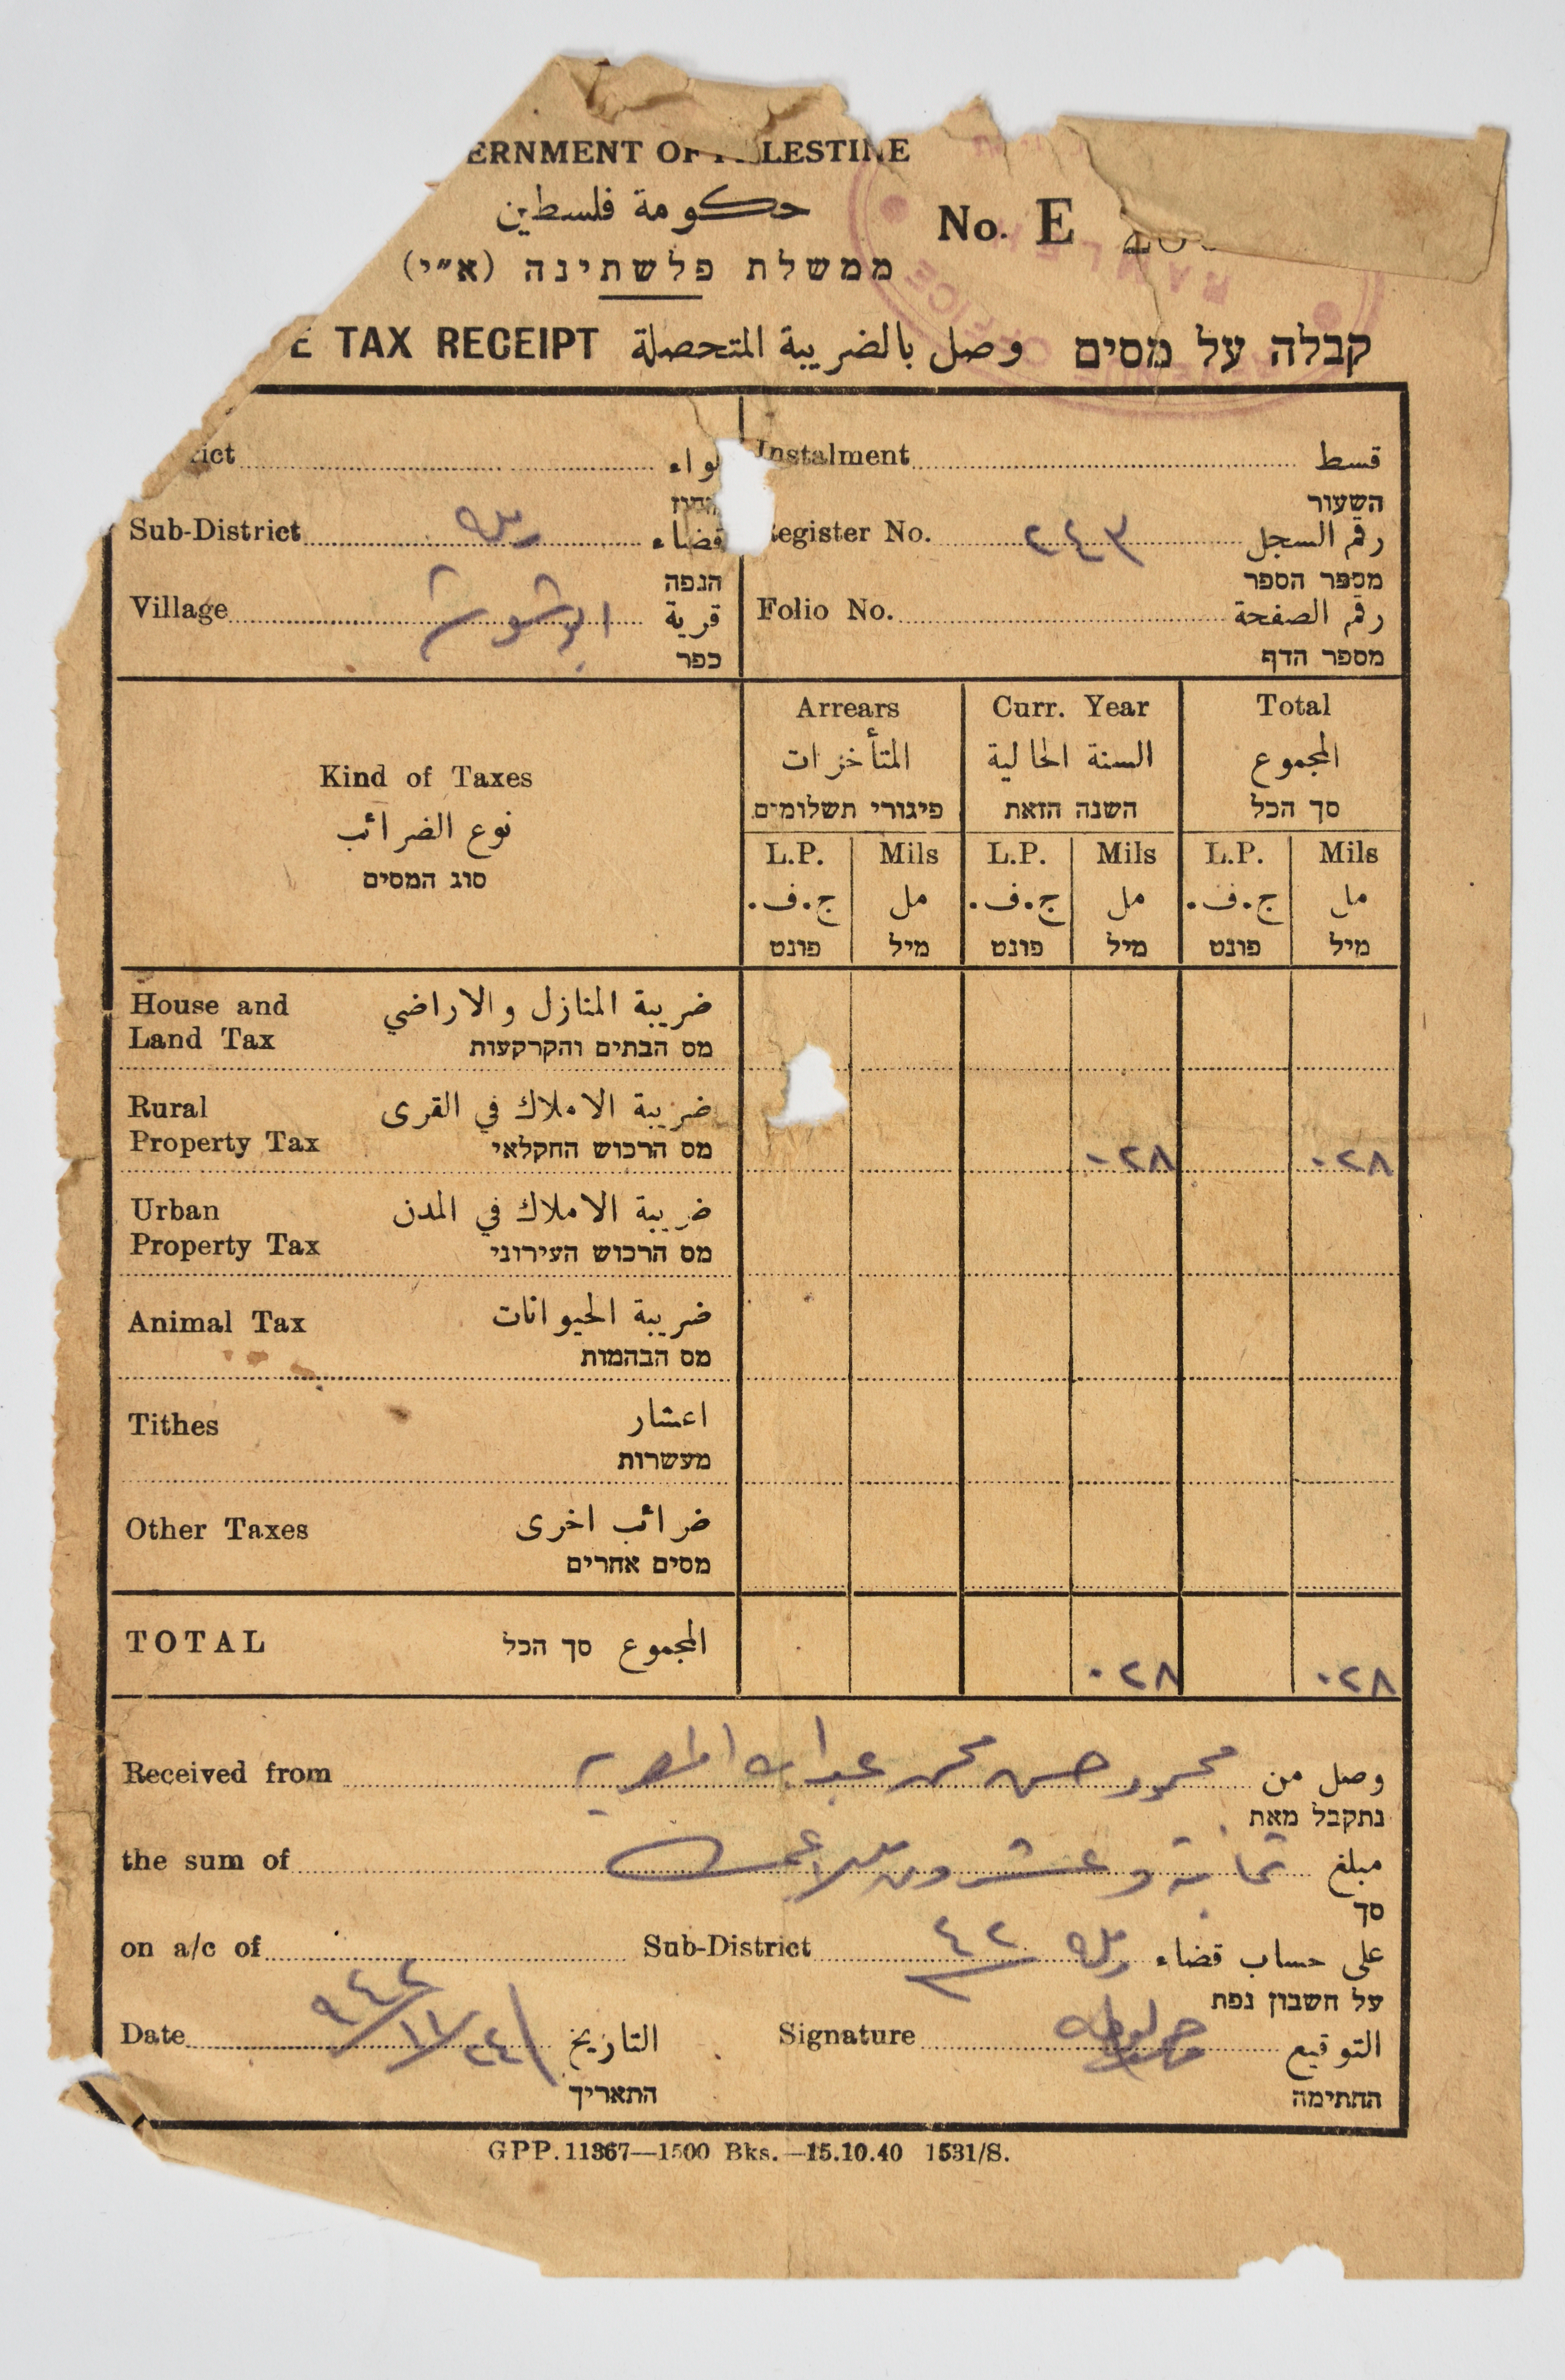 ERNMENT OF P LESTINE
حكومة فلسطين
No. E
ממשלת פלשתינה (א״י)
E TAX RECEIPT وصل بالضريبة المتحصلة קבלה על מסים
RAMLE
OFFICE
rict لواء
Instalment قسط
השעור
Sub-District رمله قضاء
הנפה
Register No. ٢٤٣ رقم السجل
מספר הספר
Village ابو شوشه قرية
כפר
Folio No. رقم الصفحة
מספר הדף
Kind of Taxes
نوع الضرائب
סוג המסים
Arrears Curr. Year Total
المتأخرات السنة الحالية المجموع
פיגורי תשלומים השנה הזאת סך הכל
L.P. Mils L.P. Mils L.P. Mils
ج.ف. مل ج.ف. مل ج.ف. مل
פונט מיל פונט מיל פונט מיל
House and Land Tax
ضريبة المنازل والاراضي
מס הבתים והקרקעות
Rural Property Tax
ضريبة الاملاك في القرى
מס הרכוש החקלאי
٠٢٨ ٠٢٨
Urban Property Tax
ضريبة الاملاك في المدن
מס הרכוש העירוני
Animal Tax ضريبة الحيوانات
מס הבהמות
Tithes اعشار
מעשרות
Other Taxes ضرائب اخرى
מסים אחרים
TOTAL المجموع סך הכל
٠٢٨ ٠٢٨
Received from محمود حسن محمد عبد الله وصل من
נתקבל מאת
the sum of ثمانية وعشرون ملا مبلغ
סך
on a/c of Sub-District رمله ٤٢ على حساب قضاء
על חשבון נפת
Date ٢٤/١١/٩٤٢ التاريخ
התאריך
Signature التوقيع
החתימה
GPP. 11367—1500 Bks.—15.10.40 1531/S.